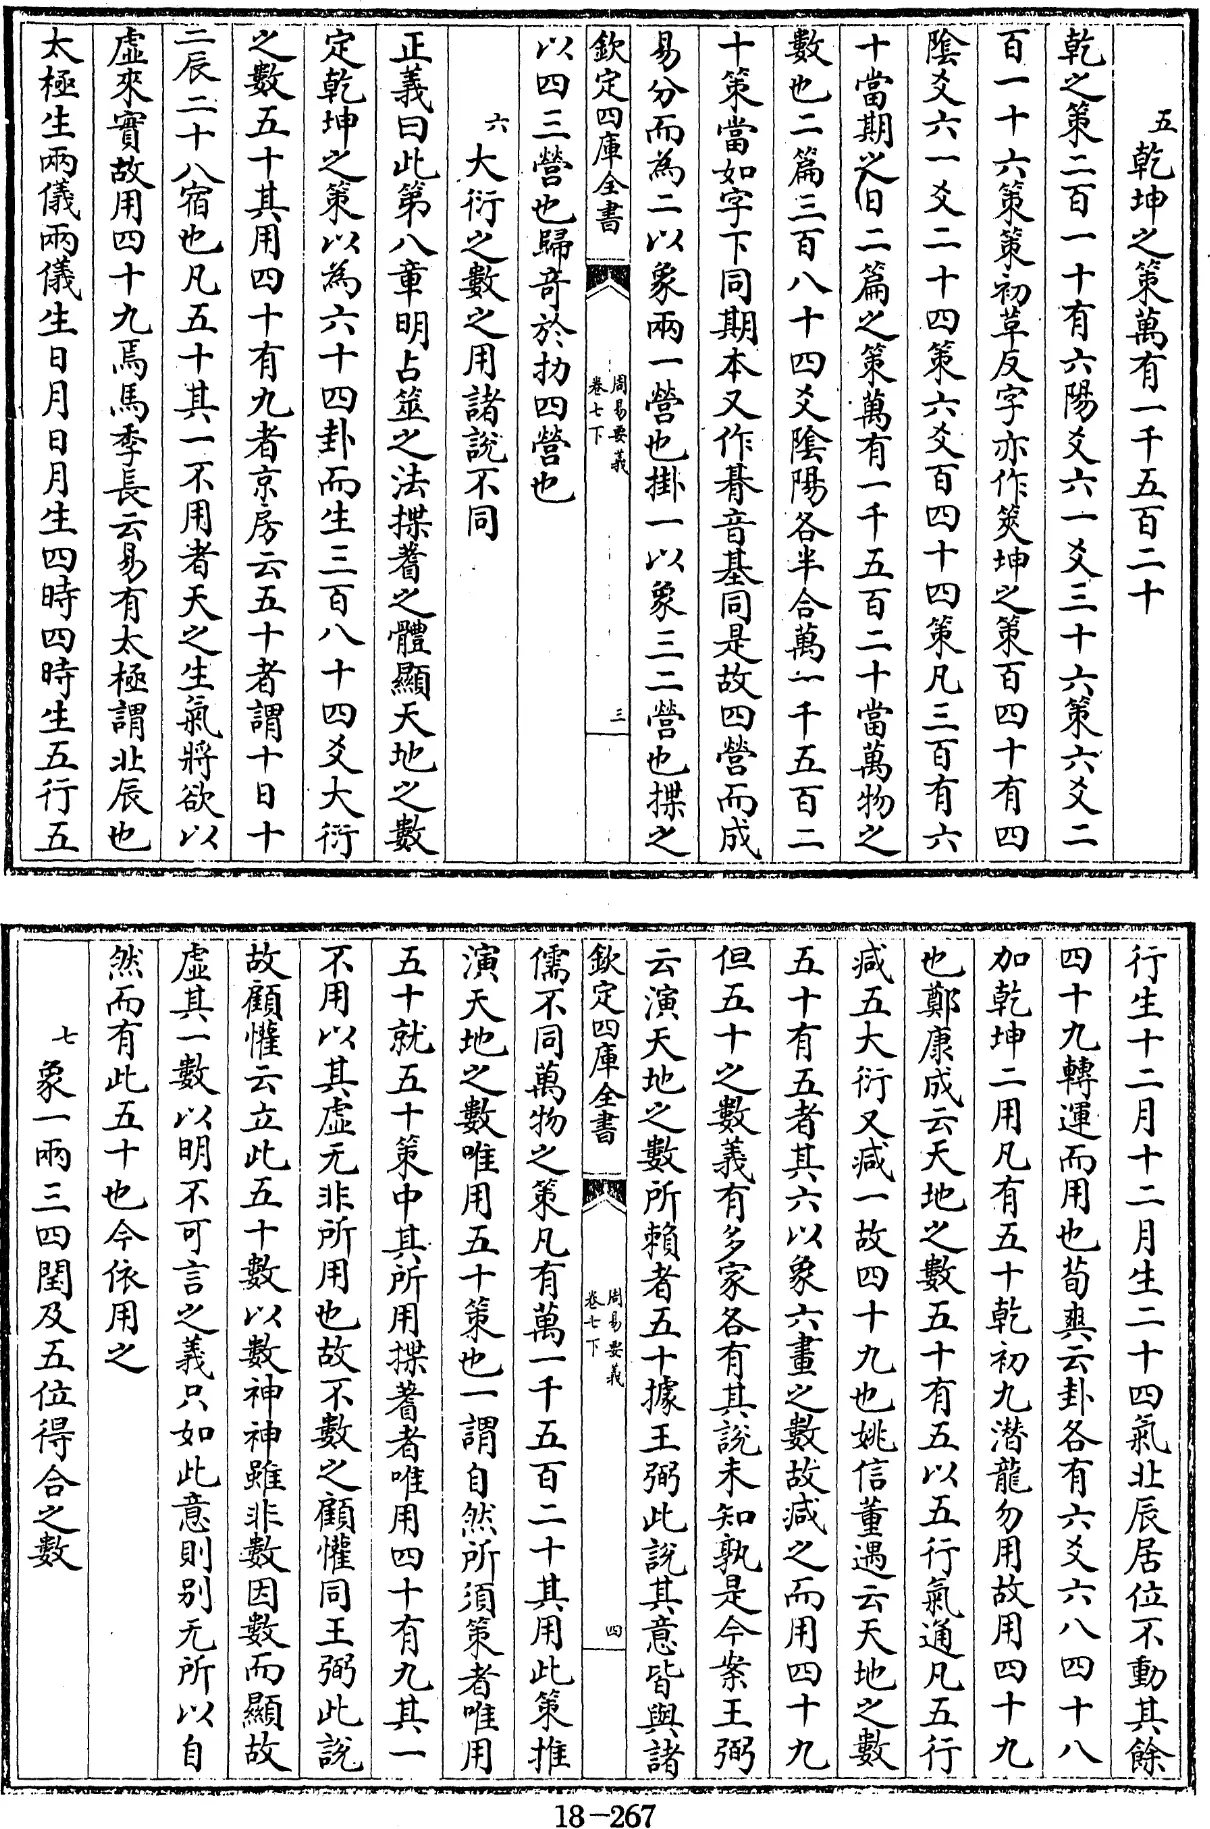 五乾坤之策萬有一千五百二十
乾之策二百一十有六陽爻六一爻三十六策六爻二
百一十六策策初草反字亦作筴坤之策百四十有四
隂爻六一爻二十四策六爻百四十四策凡三百有六
十當期之日二篇之策萬有一千五百二十當萬物之
數也二篇三百八十四爻隂陽各半合萬一千五百二
十策當如字下同期本又作朞音基同是故四營而成
易分而為二以象兩一營也掛一以象三二營也揲之
欽定四庫全書
周易要義
卷七下
三
以四三營也歸奇於扐四營也
六大衍之數之用諸說不同
正義曰此第八章明占筮之法揲蓍之體顯天地之數
定乾坤之策以為六十四卦而生三百八十四爻大衍
之數五十其用四十有九者京房云五十者謂十日十
二辰二十八宿也凡五十其一不用者天之生氣將欲以
虛來實故用四十九焉馬季長云易有太極謂北辰也
太極生兩儀兩儀生日月日月生四時四時生五行五
行生十二月十二月生二十四氣北辰居位不動其餘
四十九轉運而用也荀爽云卦各有六爻六八四十八
加乾坤二用凡有五十乾初九潜龍勿用故用四十九
也鄭康成云天地之數五十有五以五行氣通凡五行
减五大衍又减一故四十九也姚信董遇云天地之數
五十有五者其六以象六畫之數故减之而用四十九
但五十之數義有多家各有其說未知孰是今案王弼
云演天地之數所賴者五十據王弼此說其意皆與諸
欽定四庫全書
周易要義
卷七下
四
儒不同萬物之策凡有萬一千五百二十其用此策推
演天地之數唯用五十策也一謂自然所須策者唯用
五十就五十策中其所用揲蓍者唯用四十有九其一
不用以其虛无非所用也故不數之顧懽同王弼此說
故顧懽云立此五十數以數神神雖非數因數而顯故
虛其一數以明不可言之義只如此意則别无所以自
然而有此五十也今依用之
七象一兩三四閏及五位得合之數
18-267